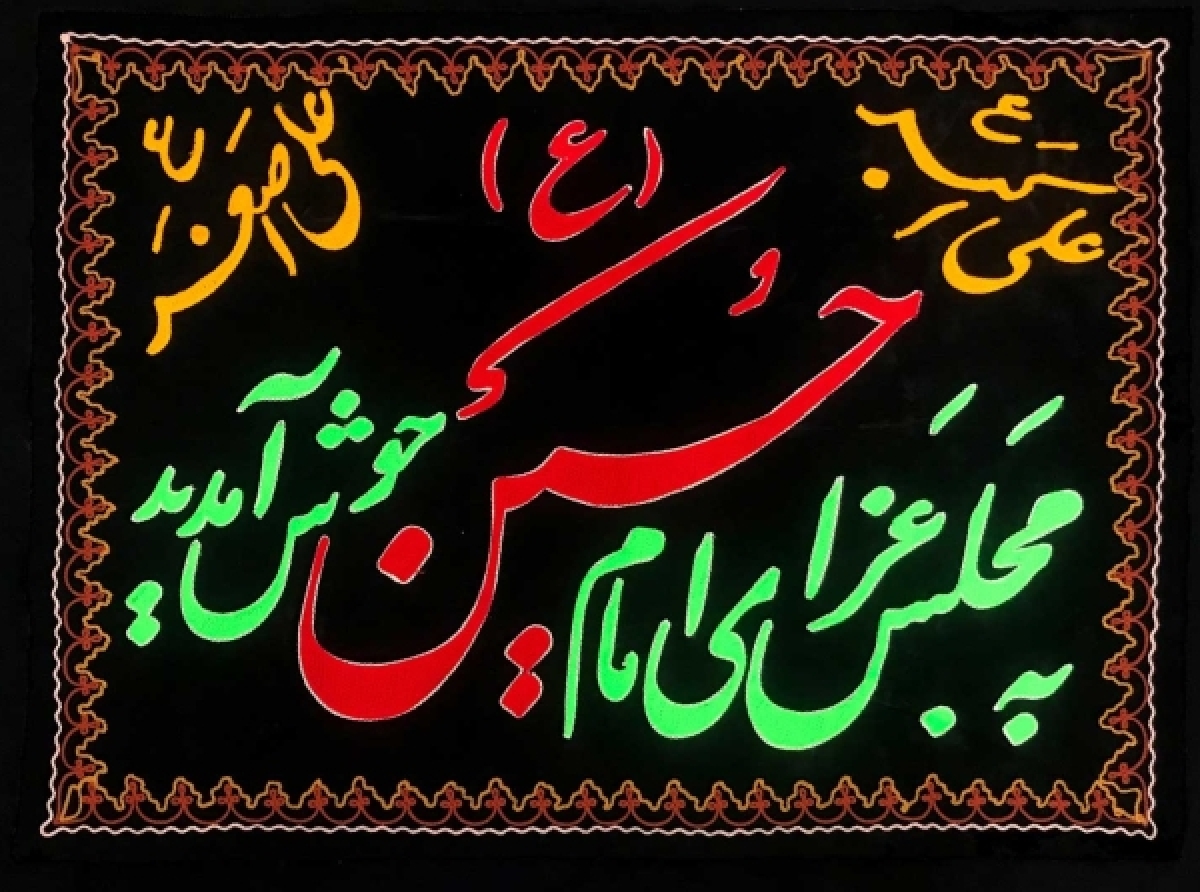 علی اکبر ع
علی اصغر ع
به مجلس عزای امام حسین (ع) خوش آمدید